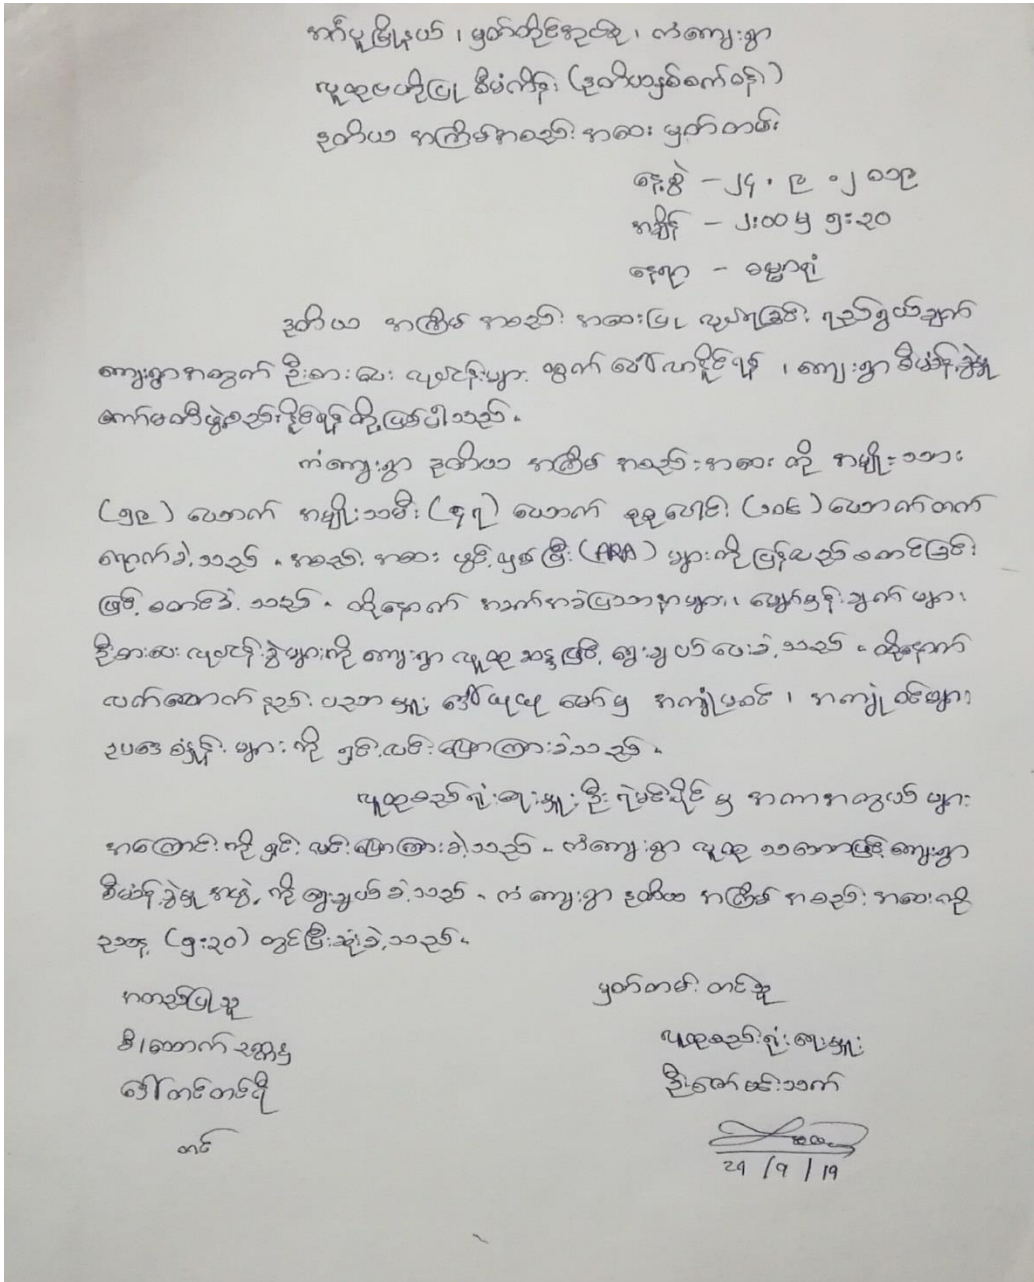 အင်္ဂပူမြို့နယ်၊ မှတ်တိုင်အုပ်စု၊ ကံကျေးရွာ
လူထုဗဟိုပြု စီမံကိန်း (ဒုတိယနှစ်စက်ဝန်း)
ဒုတိယ အကြိမ်အစည်းအဝေး မှတ်တမ်း
နေ့စွဲ - ၂၄.၉.၂၀၁၉
အချိန် - ၂း၀၀ မှ ၅း၃၀
နေရာ - ဓမ္မာရုံ
ဒုတိယ အကြိမ် အစည်းအဝေးပြု လုပ်ရခြင်း ရည်ရွယ်ချက်
ကျေးရွာအတွက် ဦးစားပေး လုပ်ငန်းများ ထွက်ပေါ်လာနိုင်ရန်၊ ကျေးရွာစီမံခန့်ခွဲမှု
ကော်မတီဖွဲ့စည်းနိုင်ရန်တို့ဖြစ်ပါသည်။
ကံကျေးရွာ ဒုတိယ အကြိမ် အစည်းအဝေး ကို အမျိုးသား
(၅၉) ယောက် အမျိုးသမီး (၄၇) ယောက် စုစုပေါင်း (၁၀၆) ယောက်တက်
ရောက်ခဲ့သည်။ အစည်းအဝေး ဖွင့်လှစ်ပြီး (PRA) များကို ပြန်လည် စတင်ခြင်း
ဖြင့် စတင်ခဲ့သည်။ ထို့နောက် အခက်အခဲပြဿနာများ၊ မျှော်မှန်းချက်များ၊
ဦးစားပေးလုပ်ငန်းခွဲများကို ကျေးရွာ လူထု ဆန္ဒဖြင့် ရွေးချယ်ပေးခဲ့သည်။ ထို့နောက်
လက်ထောက်နည်းပညာမှူး ဒေါ်ယုယုမော်မှ အကျုံးမဝင်၊ အကျုံးဝင်များ
ဥပဒေစံနှုန်းများကို ရှင်းလင်းပြောကြားခဲ့သည်။
လူထုစည်းရုံးရေးမှူး ဦးရဲမင်းပိုင်မှ အကာအကွယ်များ
အကြောင်းကို ရှင်းလင်းပြောကြားခဲ့သည်။ ကံကျေးရွာ လူထု သဘောဖြင့် ကျေးရွာ
စီမံခန့်ခွဲမှုအဖွဲ့ကို ရွေးချယ်ခဲ့သည်။ ကံကျေးရွာ ဒုတိယ အကြိမ် အစည်းအဝေးကို
ညနေ (၅း၃၀) တွင်ပြီးဆုံးခဲ့သည်။
အတည်ပြုသူ
မှတ်တမ်းတင်သူ
စီ/ထောက် ဥက္ကဋ္ဌ
လူထုစည်းရုံးရေးမှူး
ဒေါ်တင်တင်ငြိ
ဦးဇော်မင်းသက်
တင်
24/9/19